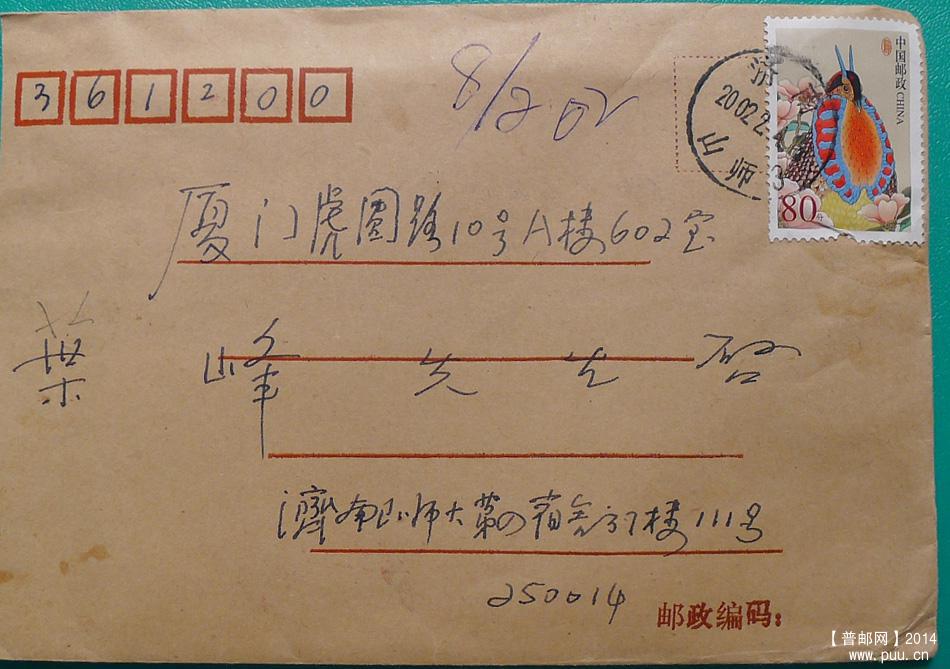 361200
8/2 02
中国邮政 CHINA
80分
济南
2002.2.4
师
厦门虎园路10号A楼602室
葉峰先生啓
濟南山师大第の宿舍37楼111号
250014
邮政编码:
【普邮网】2014
www.puu.cn